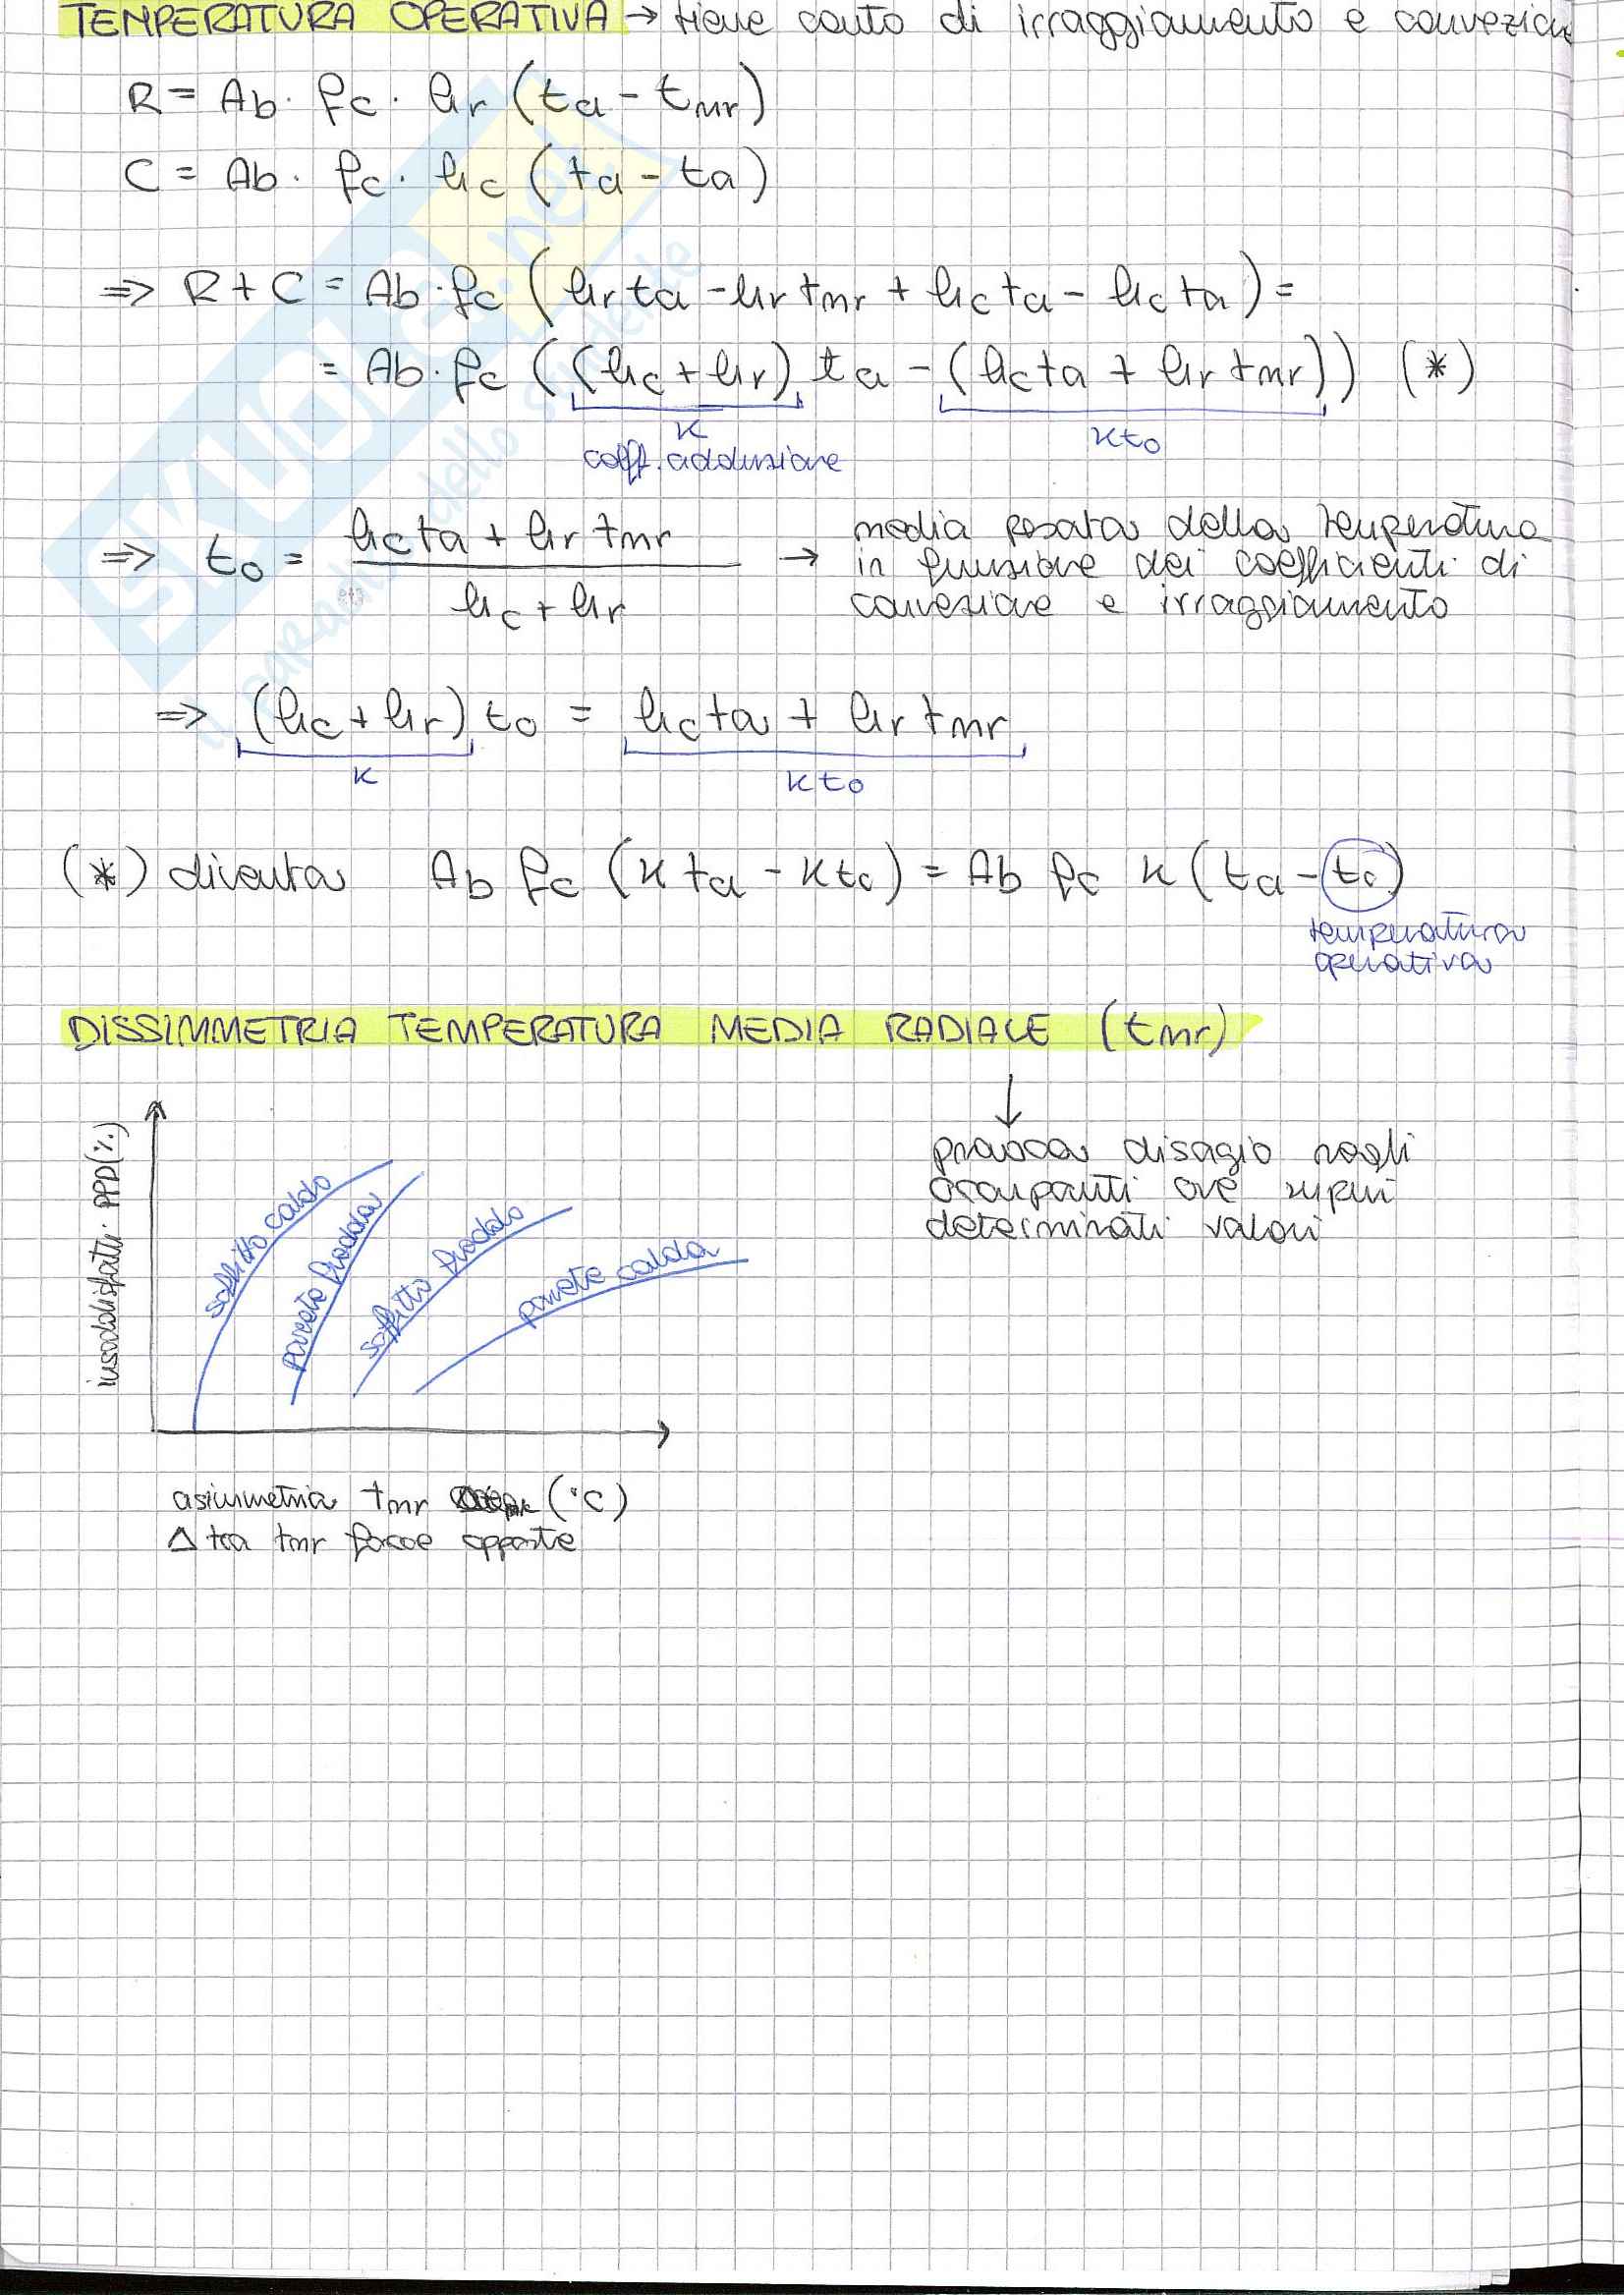 TEMPERATURA OPERATIVA → tiene conto di irraggiamento e convezion
R = Ab · fc · hr (ta - tmr)
C = Ab · fc · hc (ta - ta)
⇒ R + C = Ab · fc (hr ta - hr tmr + hc ta - hc ta) =
= Ab · fc ((hc + hr) ta - (hc ta + hr tmr)) (*)
K
coeff. adduzione
Kto
⇒ to = hc ta + hr tmr / hc + hr → media pesata della temperatura
in funzione dei coefficienti di
convezione e irraggiamento
⇒ (hc + hr) to = hc ta + hr tmr
K
Kto
(*) diventa Ab fc (K ta - Kto) = Ab fc K (ta - to)
temperatura
operativa
DISSIMMETRIA TEMPERATURA MEDIA RADIALE (tmr)
provoca disagio negli
occupanti ove superi
determinati valori
insoddisfatti PPD(%)
soffitto caldo
parete fredda
soffitto freddo
parete calda
asimmetria tmr (°C)
Δ tra tmr facce opposte
SKUOLA.net
il paradiso dello studente